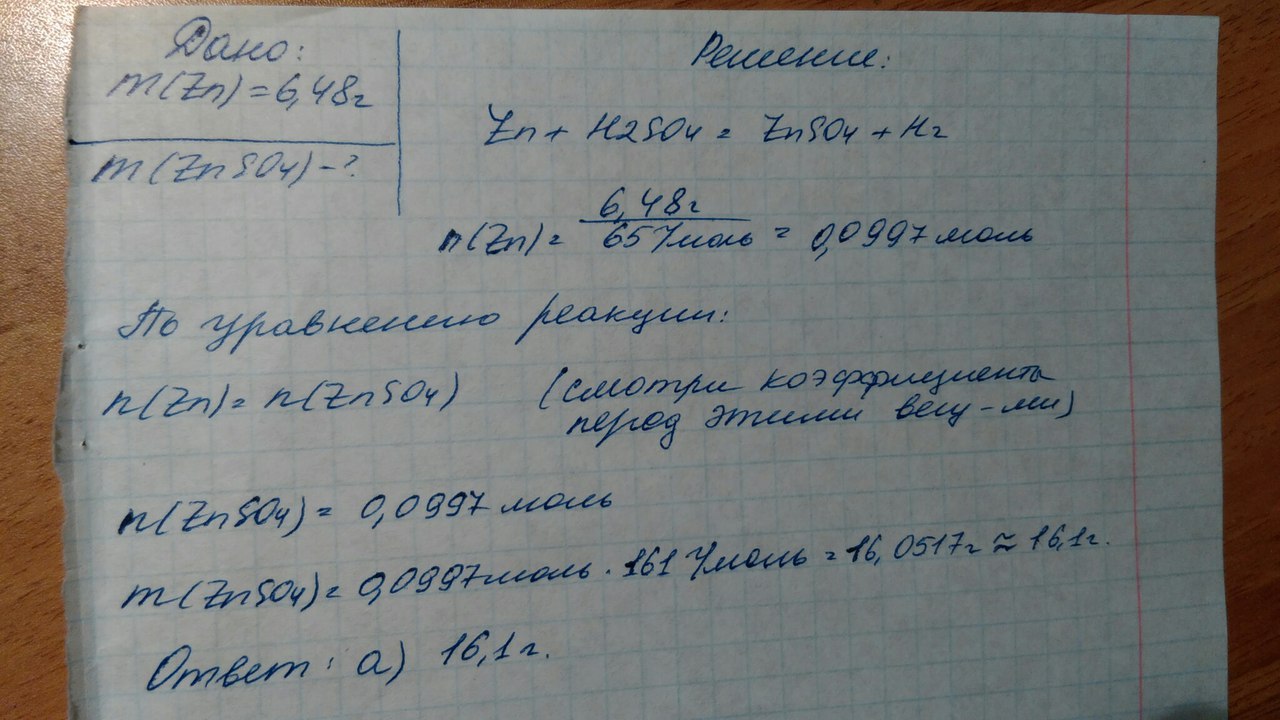 Дано:
m(Zn)=6,48г
m(ZnSO4)-?
Решение:
Zn + H2SO4 = ZnSO4 + H2
n(Zn)= 6,48г
65 г/моль = 0,0997 моль
По уравнению реакции:
n(Zn)= n(ZnSO4) (смотри коэффициенты
перед этими вещ-ми)
n(ZnSO4)= 0,0997 моль
m(ZnSO4)= 0,0997 моль · 161 г/моль = 16,0517г ≈ 16,1г.
Ответ: а) 16,1г.